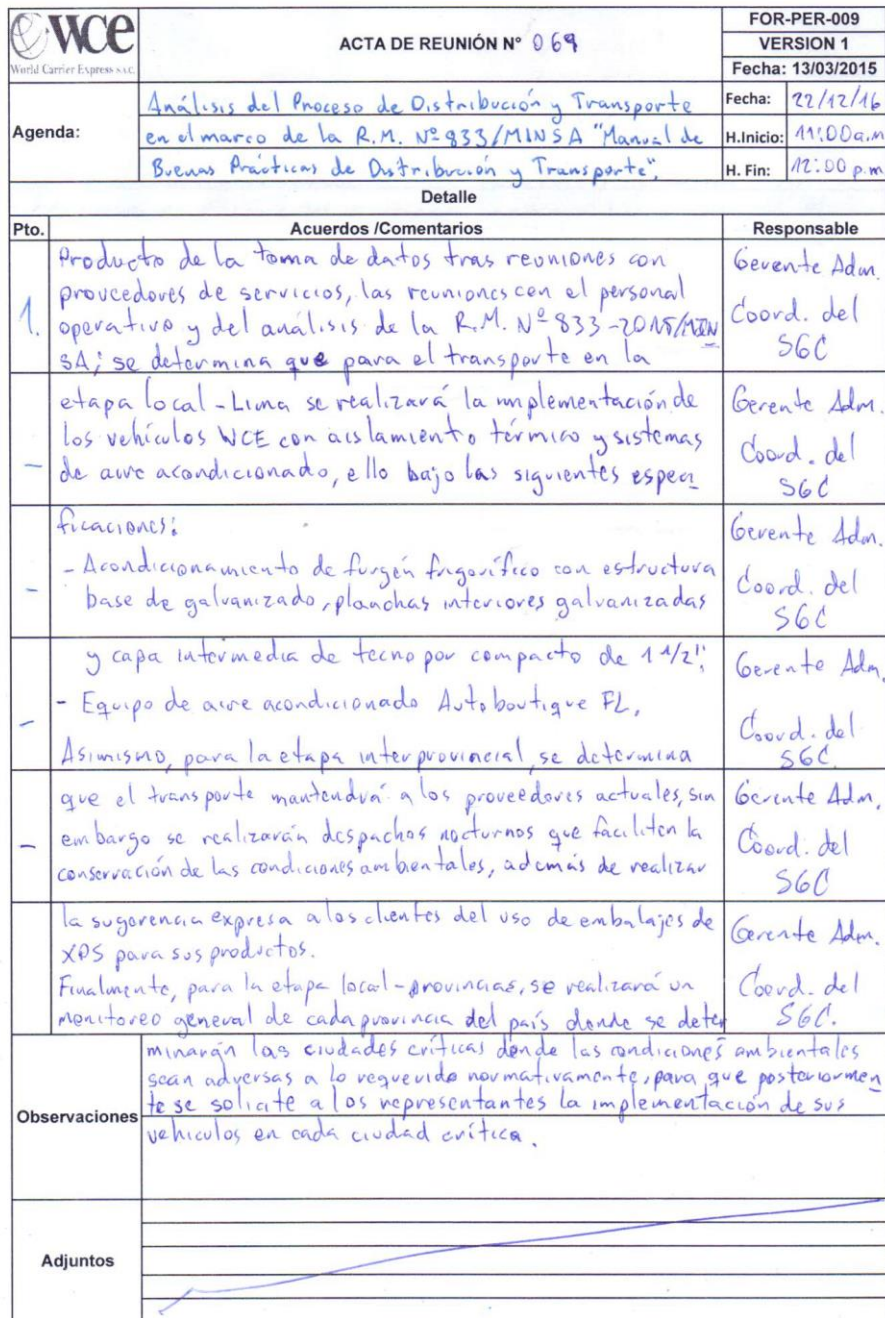 WCE
World Carrier Express S.A.C.
ACTA DE REUNIÓN N° 069
FOR-PER-009
VERSION 1
Fecha: 13/03/2015
Agenda:
Análisis del Proceso de Distribución y Transporte
en el marco de la R.M. Nº 833/MINSA "Manual de
Buenas Prácticas de Distribución y Transporte".
Fecha: 22/12/16
H.Inicio: 11:00 a.m
H. Fin: 12:00 p.m
Detalle
Pto. Acuerdos /Comentarios Responsable
1.
Producto de la toma de datos tras reuniones con
proveedores de servicios, las reuniones con el personal
operativo y del análisis de la R.M. Nº 833-2015/MIN
SA; se determina que para el transporte en la
Gerente Adm.
Coord. del
SGC
-
etapa local - Lima se realizará la implementación de
los vehículos WCE con aislamiento térmico y sistemas
de aire acondicionado, ello bajo las siguientes especi
Gerente Adm.
Coord. del
SGC
-
ficaciones:
- Acondicionamiento de furgón frigorífico con estructura
base de galvanizado, planchas interiores galvanizadas
Gerente Adm.
Coord. del
SGC
-
y capa intermedia de tecnopor compacto de 1 1/2".
- Equipo de aire acondicionado Autoboutique FL.
Asimismo, para la etapa interprovincial, se determina
Gerente Adm.
Coord. del
SGC.
-
que el transporte mantendrá a los proveedores actuales, sin
embargo se realizarán despachos nocturnos que faciliten la
conservación de las condiciones ambientales, además de realizar
Gerente Adm.
Coord. del
SGC
la sugerencia expresa a los clientes del uso de embalajes de
XPS para sus productos.
Finalmente, para la etapa local - provincias, se realizará un
monitoreo general de cada provincia del país donde se deter
Gerente Adm.
Coord. del
SGC.
Observaciones
minarán las ciudades críticas donde las condiciones ambientales
sean adversas a lo requerido normativamente, para que posteriormen
te se solicite a los representantes la implementación de sus
vehiculos en cada ciudad crítica.
Adjuntos